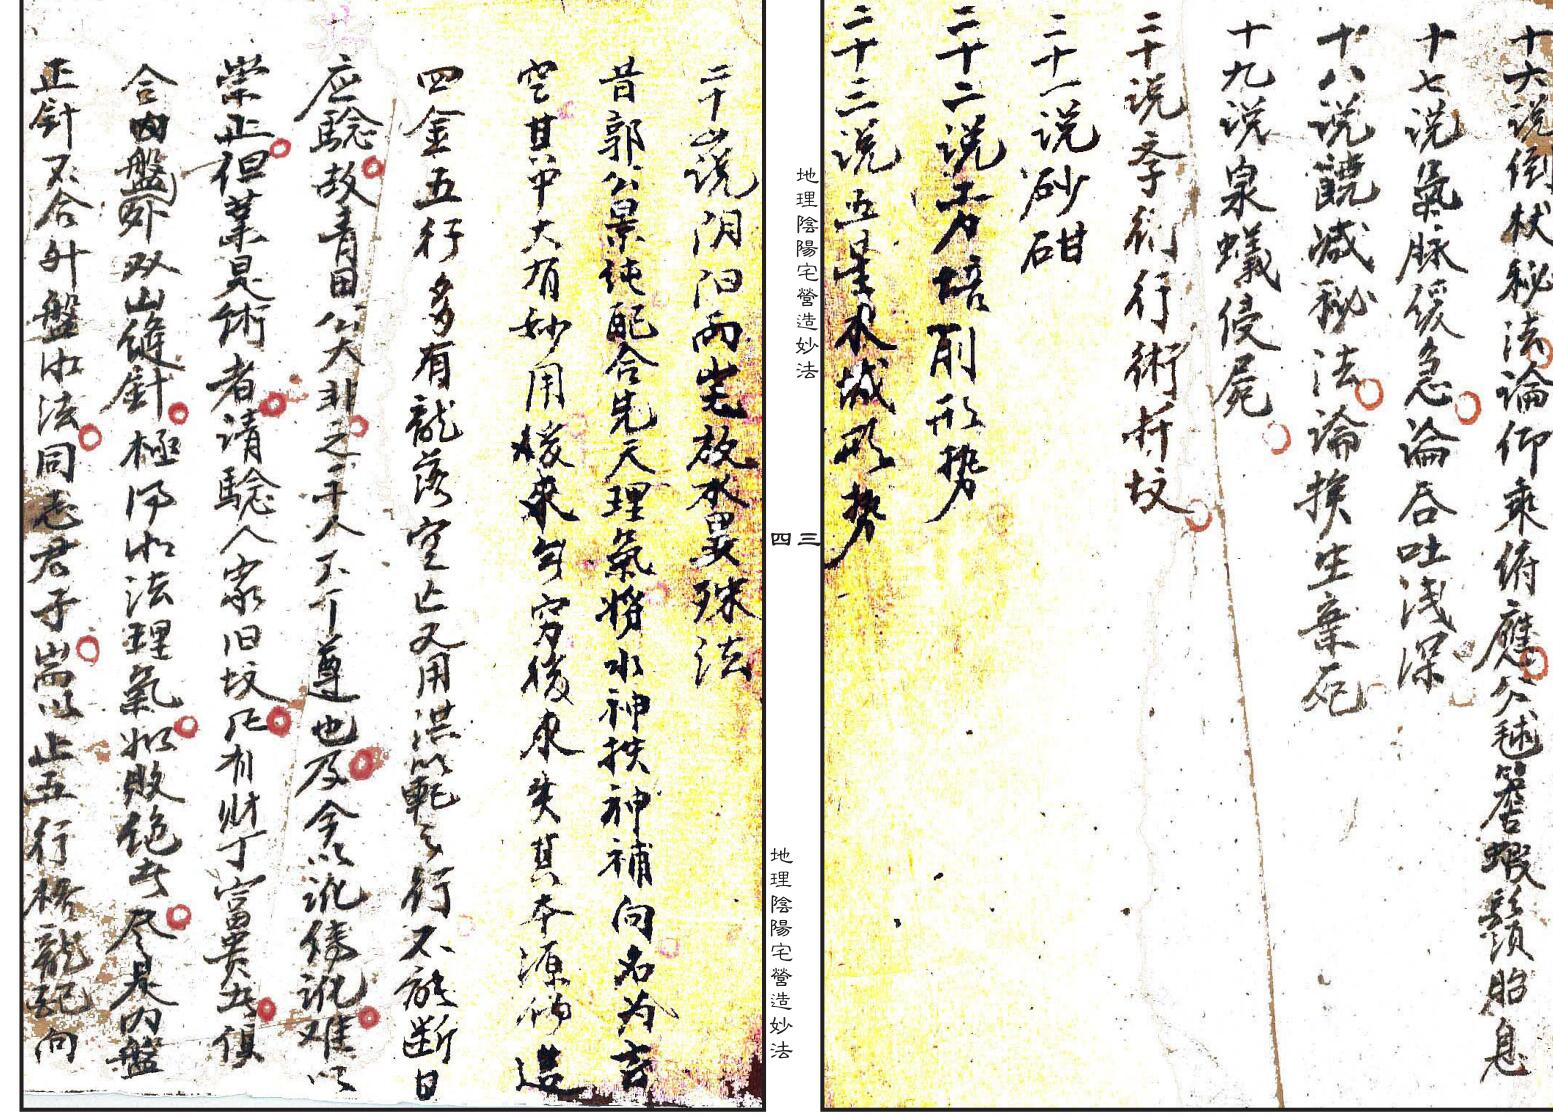 十六说倒杖秘法論仰乘俯應人毬簷蝦鬚胎息
十七说氣脉緩急論吞吐浅深
十八说饒减秘法論挨生棄死
十九说泉蟻侵屍
二十说李衍行術折坟
二十一说砂砫
二十二说培削形勢
二十三说五星水城形勢
地理陰陽宅營造妙法
三
四
地理陰陽宅營造妙法
二十四说阴阳两宅放水異殊法
昔郭公景纯配合先天理氣將水神扶神補向名为吉
空其中大有妙用後來勾穷後来失其本源伪造
四金五行多有龍落空亡又用洪範五行不能断日
应驗故青田公大非之于人不尊也及今以讹傳讹难以
崇正但業是術者请驗人家旧坟凡有财丁富贵者俱
合内盤外双山縫針極净水法理氣如敗绝者尽是内盤
正針不合外盤水法同志君子耑以正五行格龍纪向